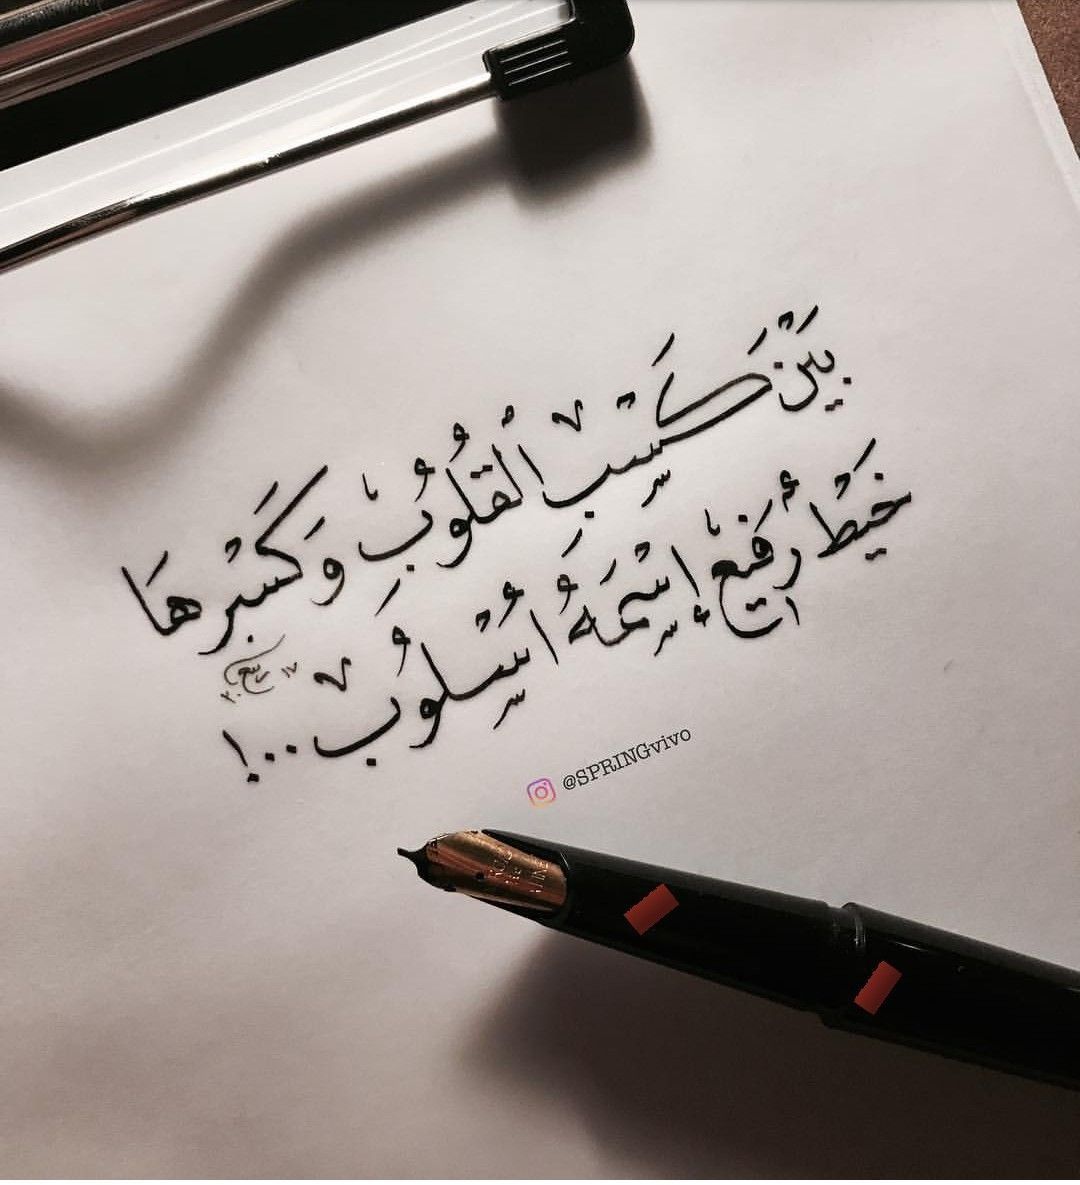 بَيْنَ كَسْبِ ٱلْقُلُوبِ وَكَسْرِهَا
خَيْطٌ رَفِيعٌ إِسْمُهُ أُسْلُوبٌ..!
@SPRINGvivo